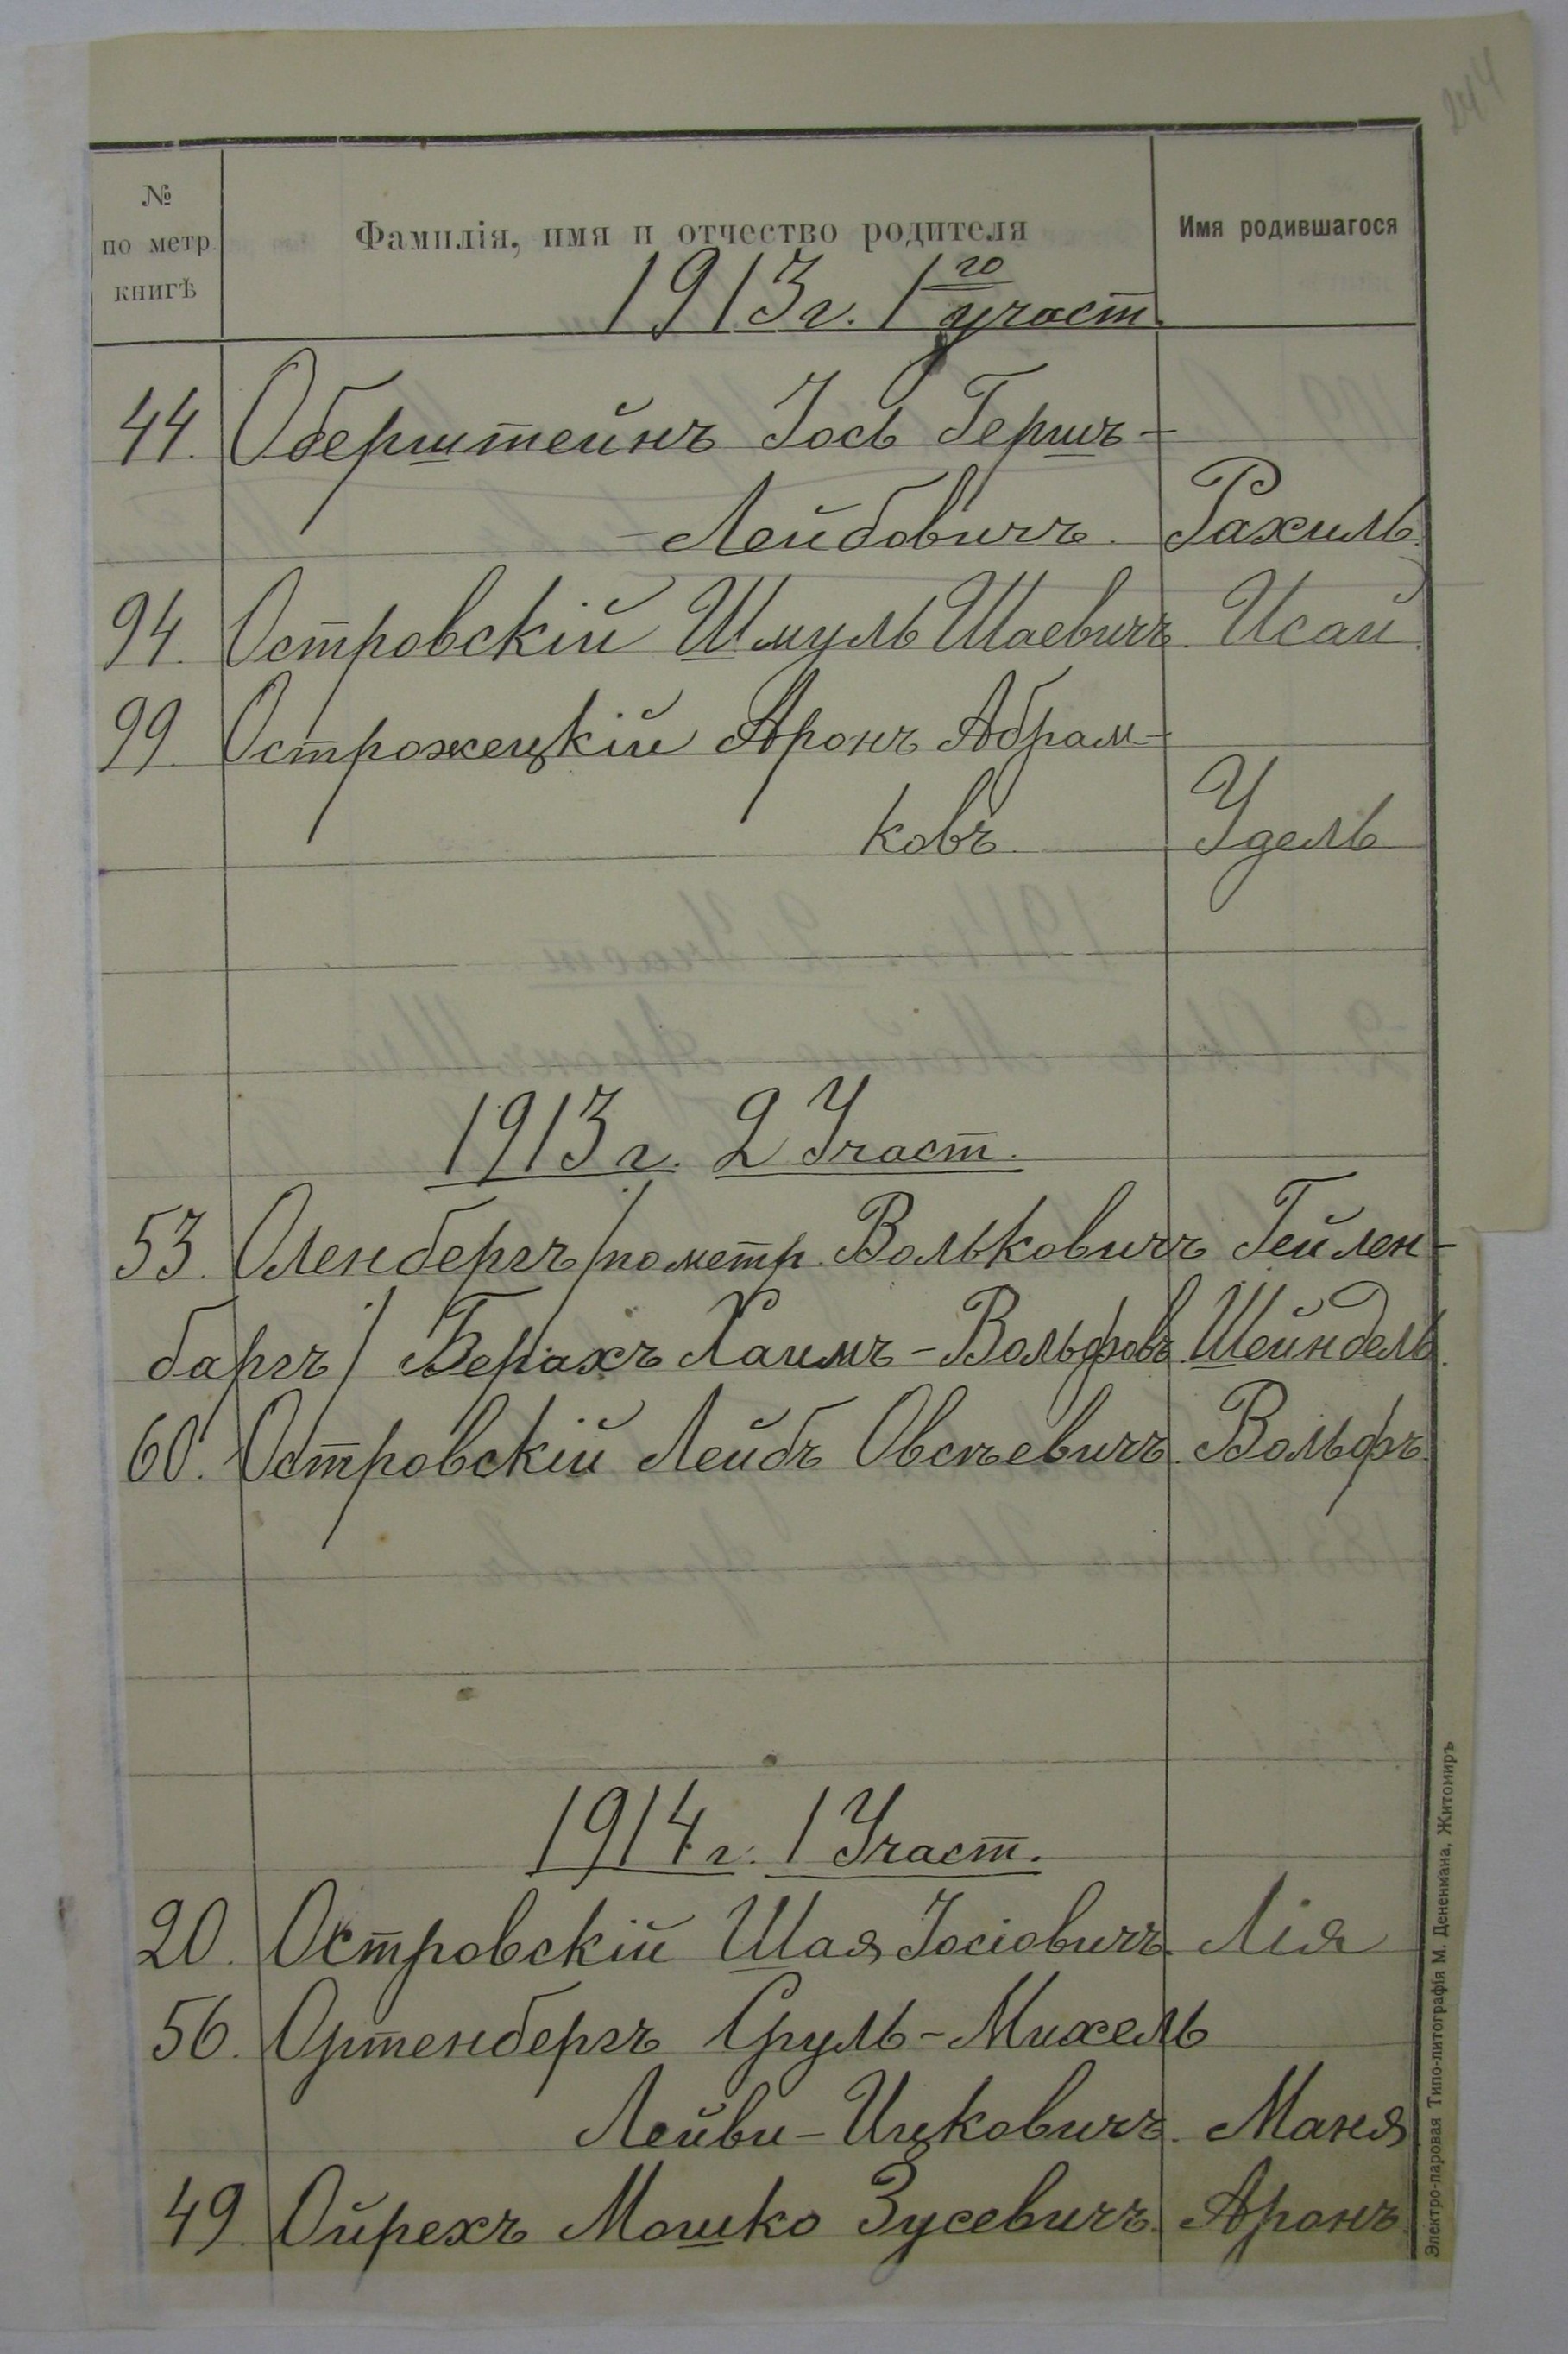 244
№ по метр. книгѣ
Фамилія, имя и отчество родителя
Имя родившагося
1913 г. 1го участ.
44. Оберштейнъ Іось Гершъ-
Лейбовичъ. Рахиль.
94. Островскій Шмуль Шаевичъ. Исай.
99. Острожецкій Аронъ Абрам-
ковъ. Удель
1913 г. 2 Участ.
53. Оленбергъ /по метр. Вольковичъ Гейлен-
баргъ/ Берахъ Хаимъ-Вольфовъ. Шейндель.
60. Островскій Лейбъ Овсѣевичъ. Вольфъ.
1914 г. 1 Участ.
20. Островскій Шая Іосіовичъ. Лія
56. Ортенбергъ Сруль-Михель
Лейви-Ицковичъ. Маня
49. Ойрехъ Мошко Зусевичъ. Аронъ.
Электро-паровая Типо-литографія М. Дененмана, Житомиръ